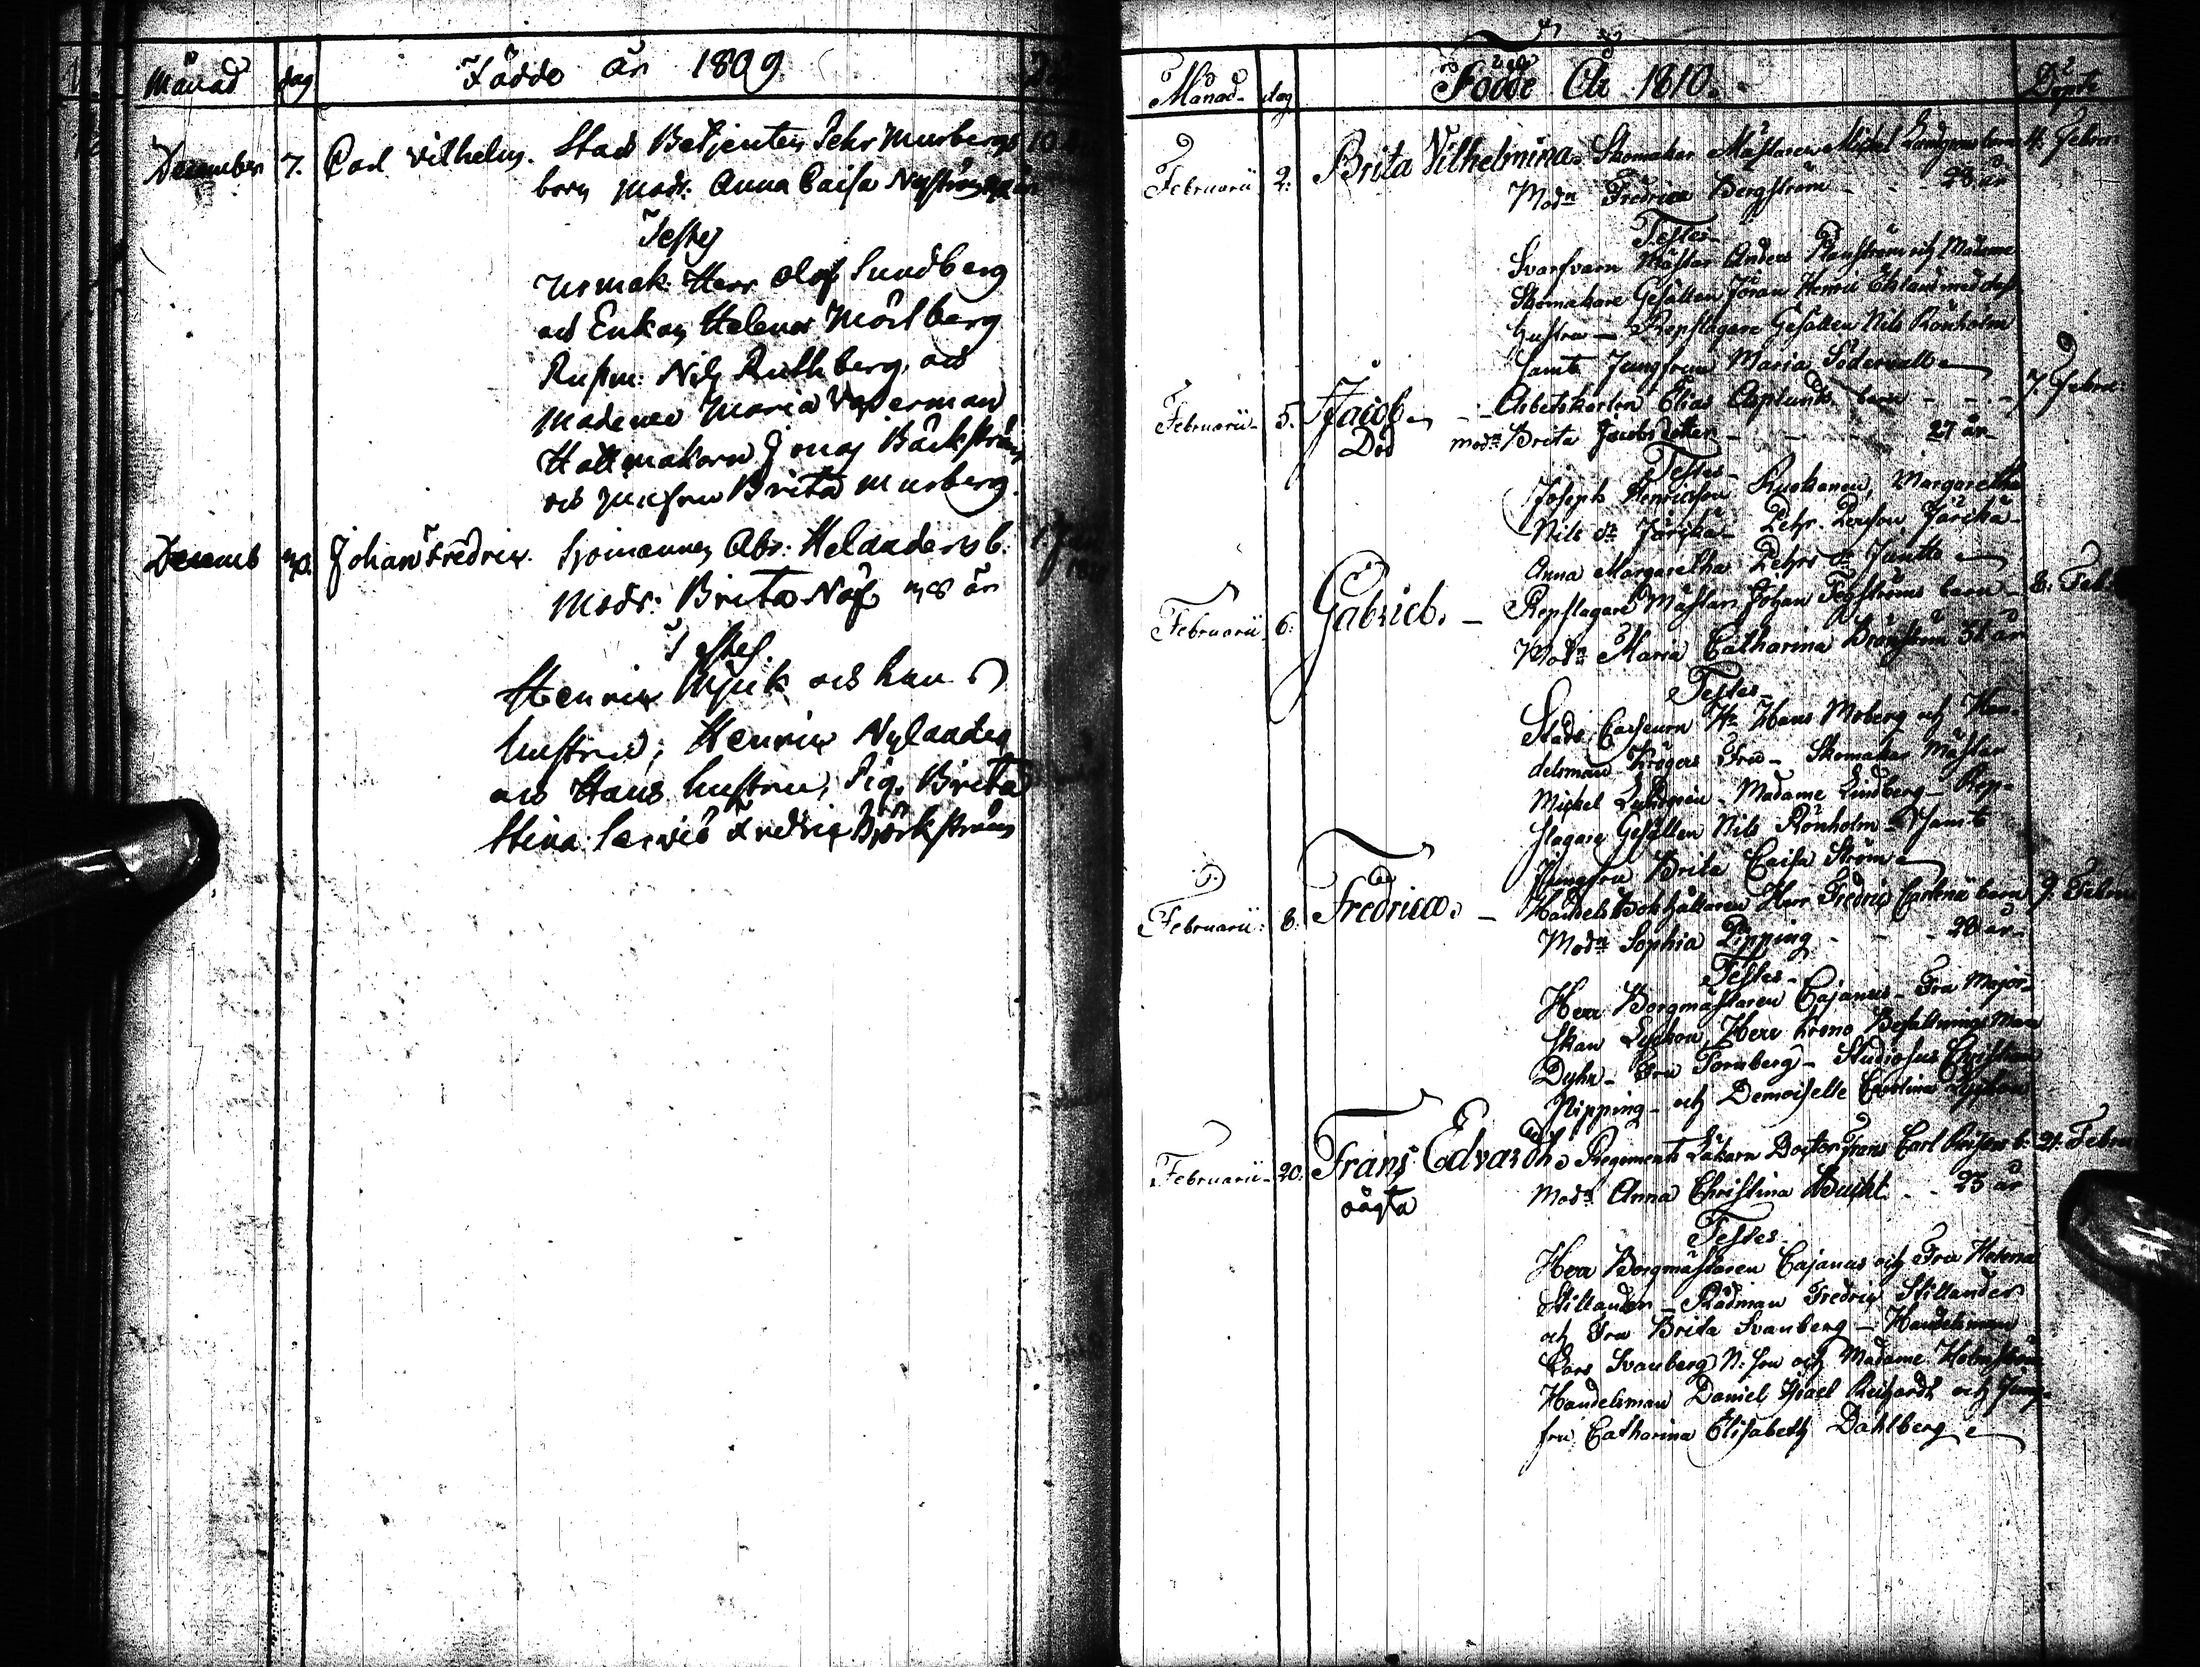 Månad dag Födde år 1809
December 7. Carl Vilhelm. Stads Betjenten Pehr Murbergs 10
barn Modr: Anna Caisa Nyström
Testes
Urmak: Herr Olof Sundberg
och Enkan Helena Mörtberg
Rustm: Nils Ruthberg, och
Madame Maria Vesterman
Hattmakaren Jonas Bäckström
och Jungfru Brita Murberg.
Decemb 30. Johan Fredric. Sjömannen Abr: Helanders b.
Modr: Brita Näf 28 år
Testes.
Henric Mjuk och hans
hustru; Henric Nylander
och Hans hustru, Pig. Brita
Stina Fredric Björkström
Månad dag Födde År 1810. Döpte
Februarii 2. Brita Vilhelmina. Skomakar Mästaren Mickel barn 4. Febru
Modn Fredrica Bergström - - 28 år
Testes
Svarfvaren Mästar Anders och Madame
Skomakare Gesällen Jöran Henric Eklund med dess
hustru - Repslagare Gesällen Nils Rönholm
samt Jungfrun Maria Södervall
Februarii 5. Jacob - - Arbetskarlen Elias Asplunds barn - - 7. Febru
Död modn Brita Jacobs dotter - - 27 år
Testes
Joseph Henricsson Margaretha
Nils dr Järikä - Pehr Persson Järikä
Anna Margaretha Pehrs dr Juntto
Februarii 6. Gabriel. - Repslagare Mästar Johan Fogströms barn - 8. Feb
Modn Maria Catharina Brännström 31 år
Testes
Stads Casseurn Hr Hans Moberg och Han-
delsman Krögers Fru - Skomakar Mästar
Mickel - Madame Lindberg - Rep-
slagare Gesällen Nils Rönholm samt
Jungfru Brita Caisa Ström
Februarii 8. Fredrica. - Handels Bokhållaren Herr Fredric barn 9. Febru
Modn Sophia Pipping - - 20 år
Testes
Herr Borgmästaren Cajanus - Fru Major-
skan Lychou, Herr Krono Befallnings Man
Dyhr - Fru Tornberg - Studiosus Christian
Pipping - och Demoiselle Carolina
Februarii 20. Frans Edvardh. Regements Läkarn Doctor Frans Carl b. 21. Febru
oägta Modn Anna Christina Bucht - - 25 år
Testes
Herr Borgmästaren Cajanus och Fru Helena
Stillander - Rådman Fredric Stillander
och Fru Brita Svanberg - Handelsman
Lars Svanberg N: Son och Madame Holmström
Handelsman Daniel Isael Reichardt och Jung-
fru Catharina Elisabeth Dahlberg